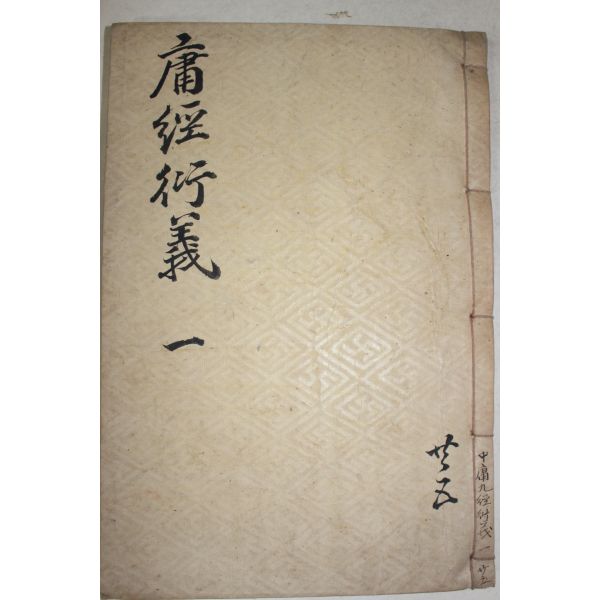 庸經衍義 一
共五
中庸九經衍義 一 共五